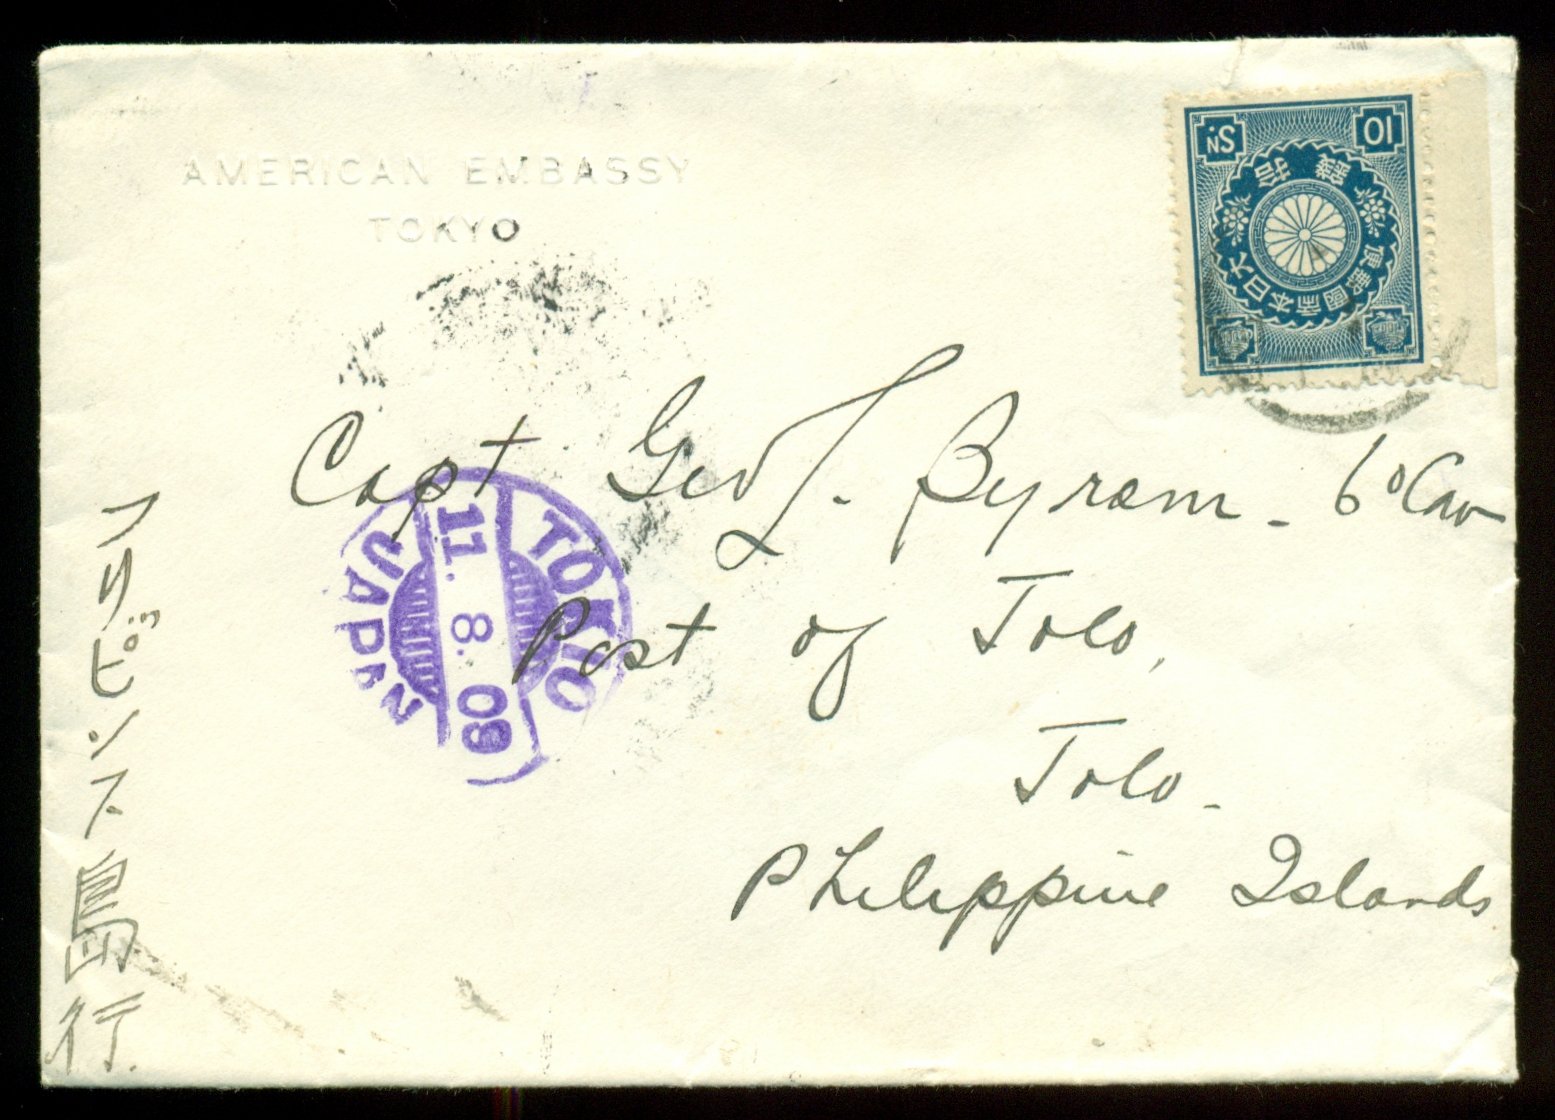 AMERICAN EMBASSY
TOKYO
10 Sn.
拾錢
大日本帝國郵便
Capt Geo J. Byram - 6º Cav
Post of Jolo,
Jolo -
Philippine Islands
TOKIO
11. 8. 09
JAPAN
フリッピンス島行